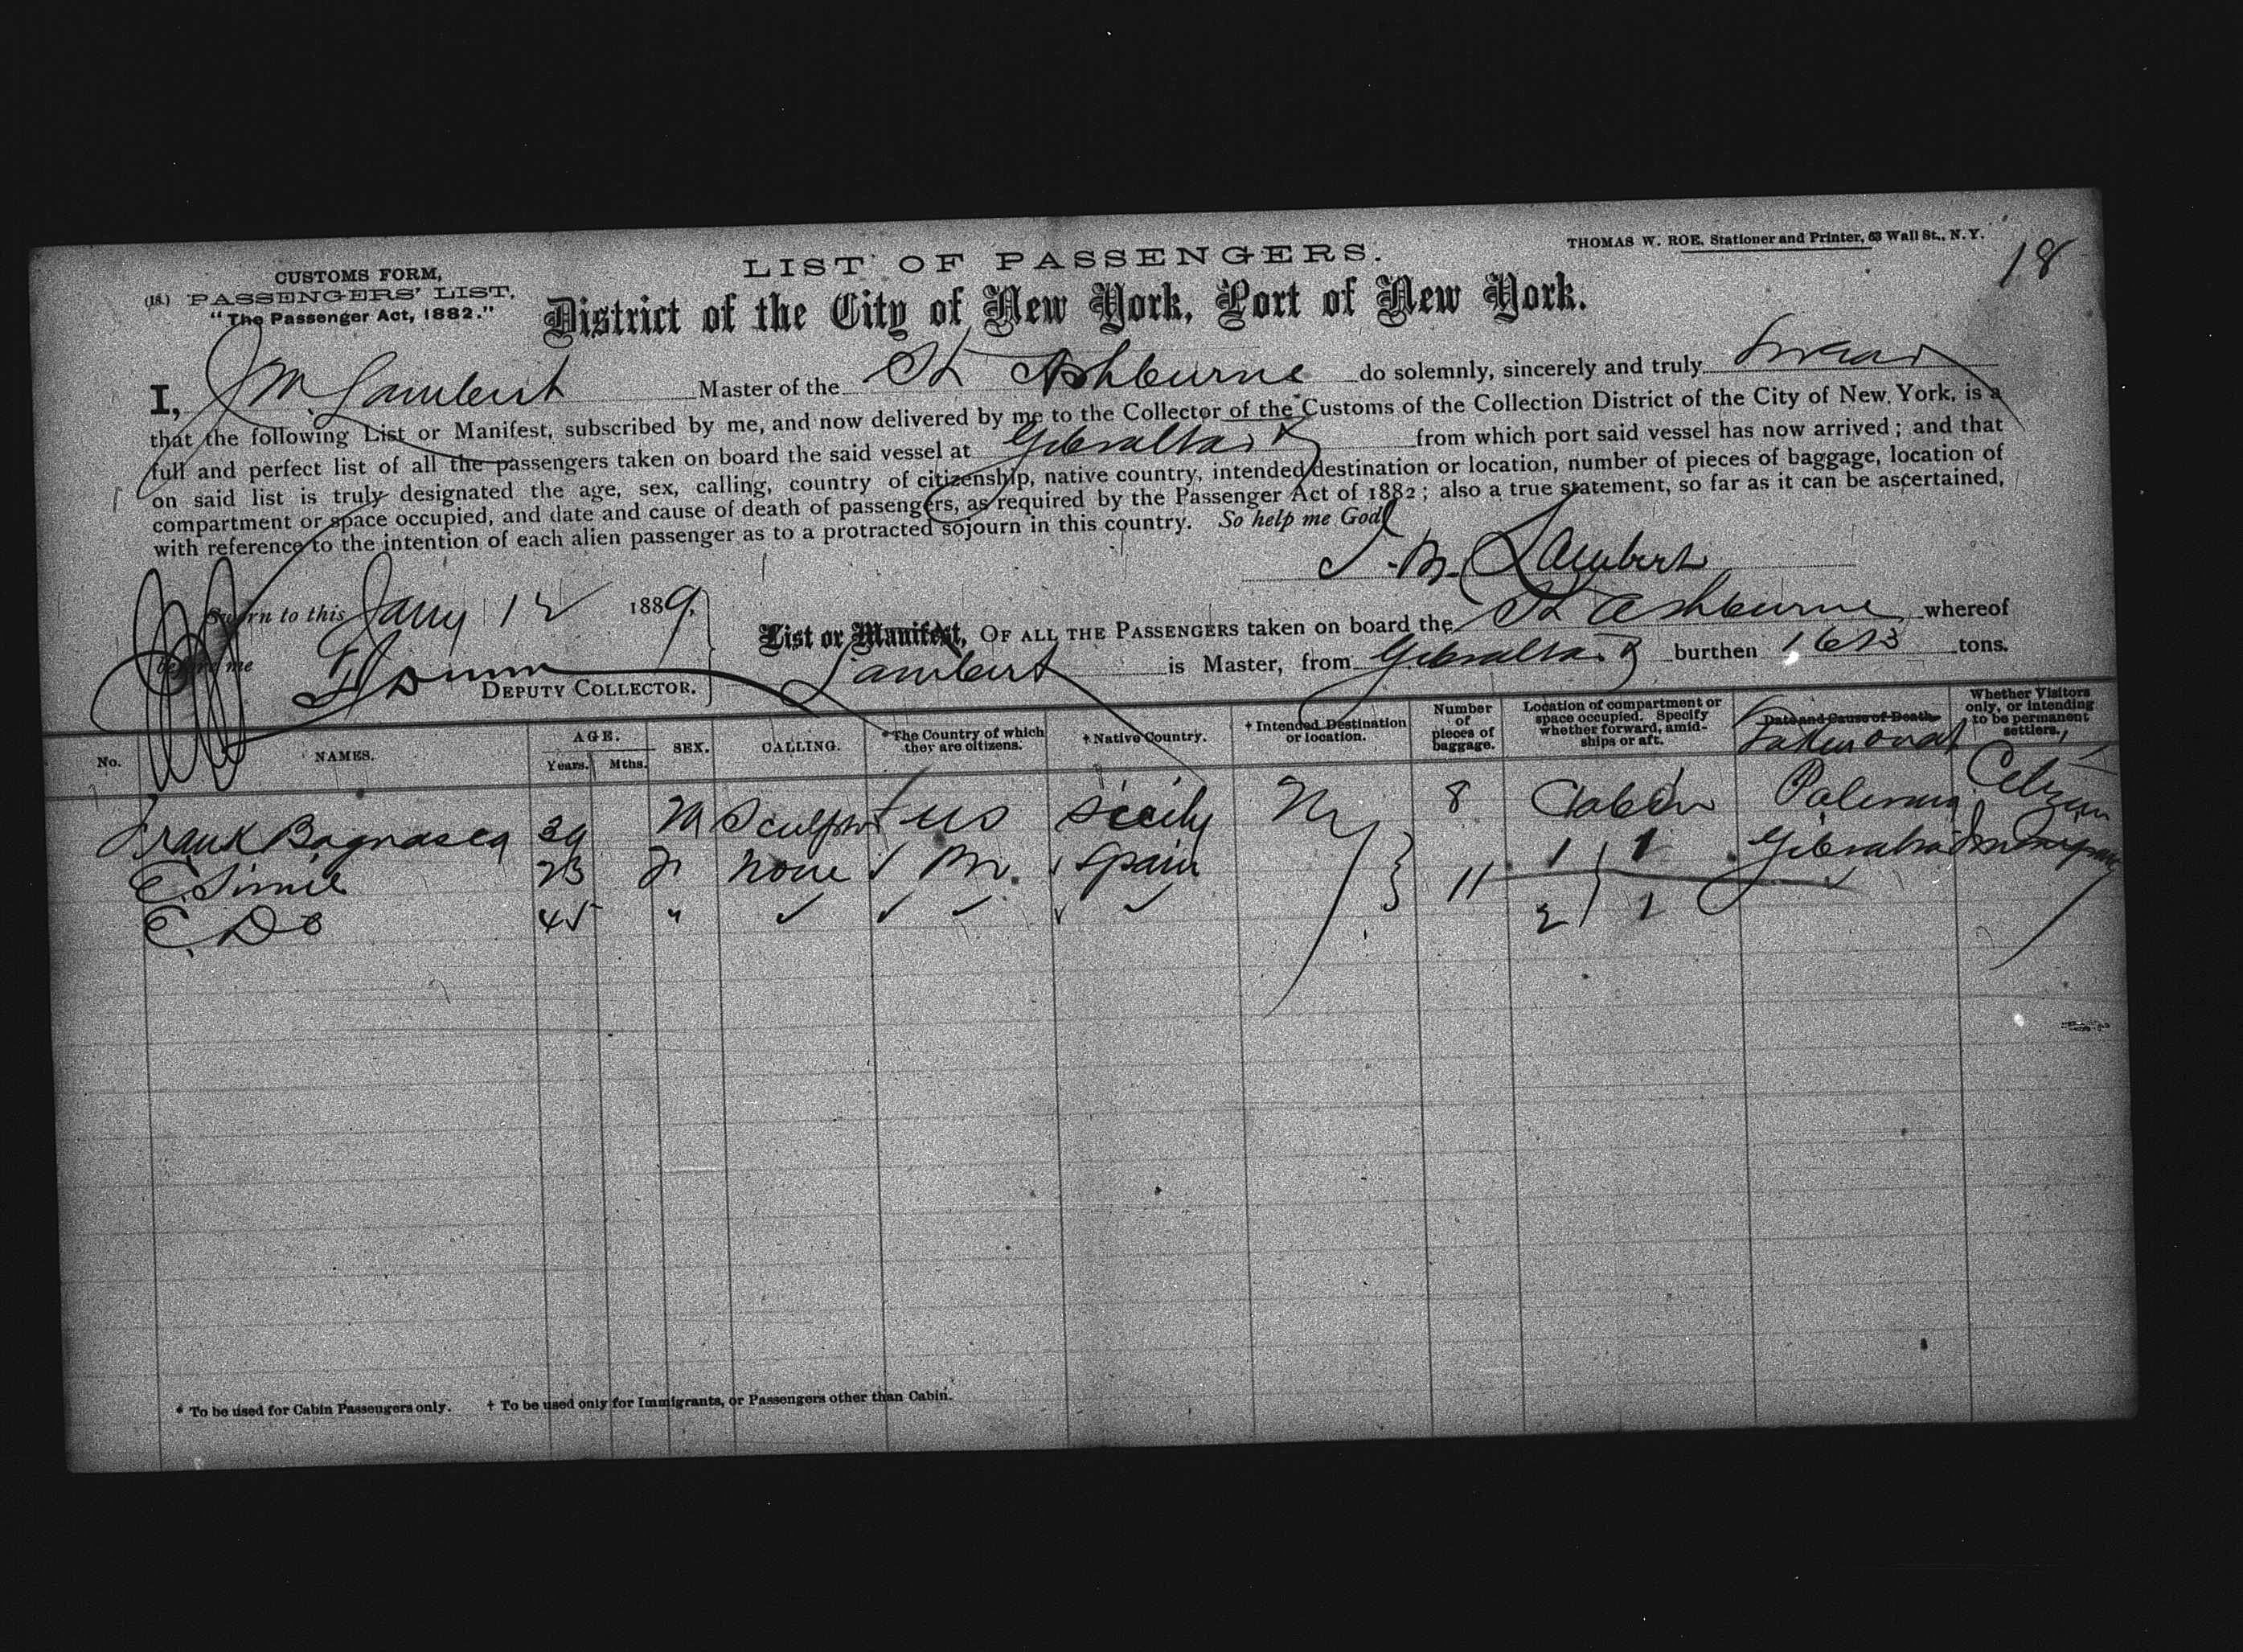 THOMAS W. ROE, Stationer and Printer, 63 Wall St., N.Y.
18
CUSTOMS FORM,
(18.) PASSENGERS' LIST,
"The Passenger Act, 1882."
LIST OF PASSENGERS.
District of the City of New York, Port of New York.
I, J M Lambert Master of the St Ashburne do solemnly, sincerely and truly swear
that the following List or Manifest, subscribed by me, and now delivered by me to the Collector of the Customs of the Collection District of the City of New York, is a
full and perfect list of all the passengers taken on board the said vessel at Gibraltar from which port said vessel has now arrived; and that
on said list is truly designated the age, sex, calling, country of citizenship, native country, intended destination or location, number of pieces of baggage, location of
compartment or space occupied, and date and cause of death of passengers, as required by the Passenger Act of 1882; also a true statement, so far as it can be ascertained,
with reference to the intention of each alien passenger as to a protracted sojourn in this country. So help me God
J. M. Lambert
Sworn to this Jany 12 1889,
before me
DEPUTY COLLECTOR.
List or Manifest, OF ALL THE PASSENGERS taken on board the St Ashburne whereof
Lambert is Master, from Gibraltar burthen tons.
No. NAMES. AGE. Years. Mths. SEX. CALLING. *The Country of which they are citizens. †Native Country. †Intended Destination or location. Number of pieces of baggage. Location of compartment or space occupied. Specify whether forward, amidships or aft. Date and Cause of Death Taken on at Whether Visitors only, or intending to be permanent settlers.
Frank Bagnasca 39 M Sculptor US Sicily NY 8 Cabin Palermo Citizen
E. 23 F none Spain 11 1 1 Gibraltar
E. Do 45 " 2 1
* To be used for Cabin Passengers only. † To be used only for Immigrants, or Passengers other than Cabin.